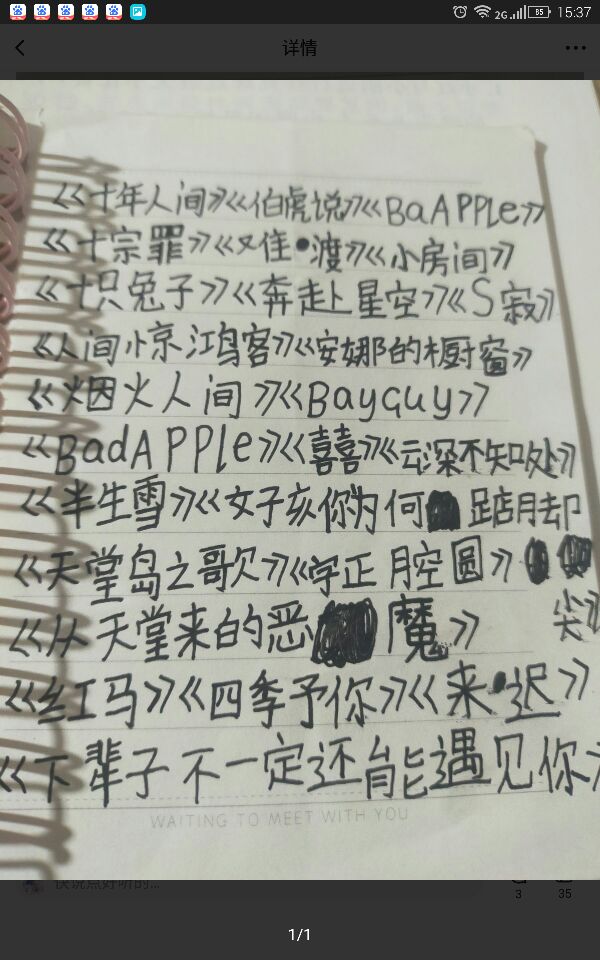 2G
85
15:37
详情
《十年人间》《伯虎说》《BaAPPLe》
《十宗罪》《又住渡》《小房间》
《十只兔子》《奔赴星空》《S寂》
《人间惊鸿客》《安娜的橱窗》
《烟火人间》《BayGuy》
《BadAPPle》《囍》《云深不知处》
《半生雪》《女孩你为何踮脚
尖》
《天堂岛之歌》《字正腔圆》
《从天堂来的恶魔》
《红马》《四季予你》《来迟》
《下辈子不一定还能遇见你》
WAITING TO MEET WITH YOU
快说点好听的...
3
35
1/1